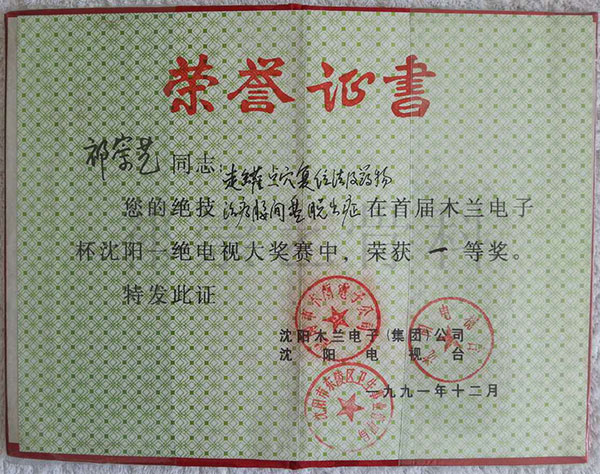 荣誉证书
祁崇艺同志:走罐点穴复位法及药物
您的绝技治疗腰间盘脱出症在首届木兰电子
杯沈阳一绝电视大奖赛中,荣获一等奖。
特发此证
沈阳木兰电子(集团)公司
沈阳电视台
一九九一年十二月